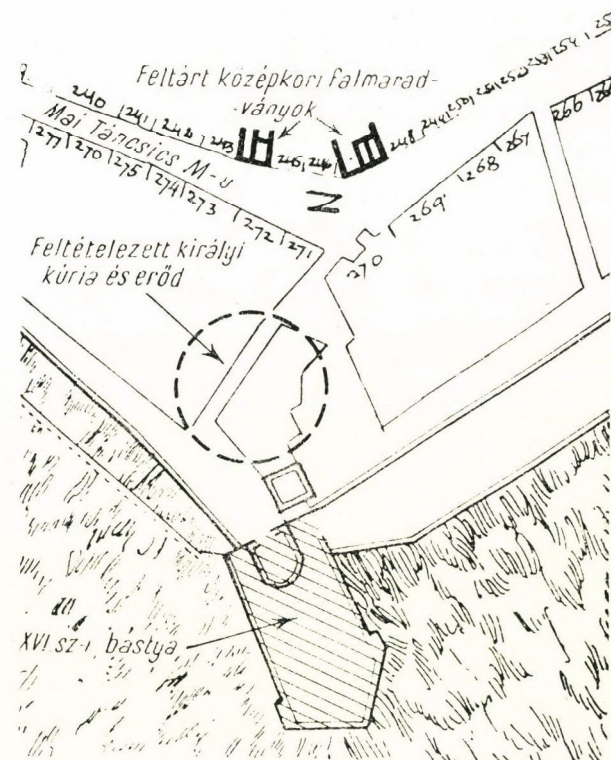 Feltárt középkori falmarad-
ványok
240 241 242 243
248 249 250 251 252 253 254
266
Mai Táncsics M-u
277 270 275 274 273 272 271
267
268
269
270
N
Feltételezett királyi
kúria és erőd
XVI sz-i bástya